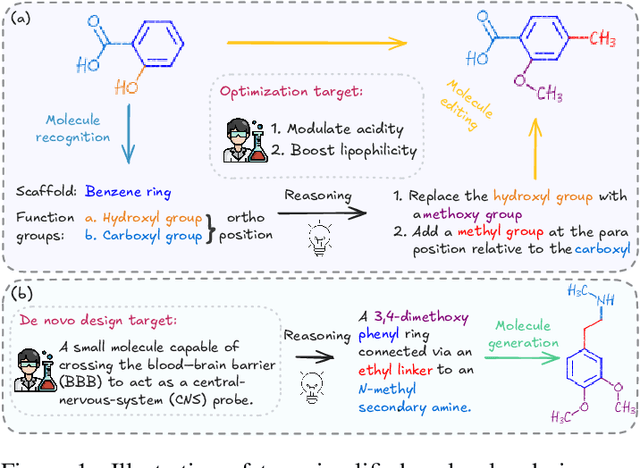 (a)
HO
O
HO
Molecule
recognition
Optimization target:
1. Modulate acidity
2. Boost lipophilicity
O
HO
CH₃
O
CH₃
Molecule
editing
Scaffold: Benzene ring
Function
groups:
a. Hydroxyl group
b. Carboxyl group
ortho
position
Reasoning
1. Replace the hydroxyl group with
a methoxy group
2. Add a methyl group at the para
position relative to the carboxyl
(b)
De novo design target:
A small molecule capable of
crossing the blood–brain barrier
(BBB) to act as a central-
nervous-system (CNS) probe.
Reasoning
A 3,4-dimethoxy
phenyl ring
connected via an
ethyl linker to an
N-methyl
secondary amine.
Molecule
generation
H₃C
NH
O
CH₃
H₃C
O